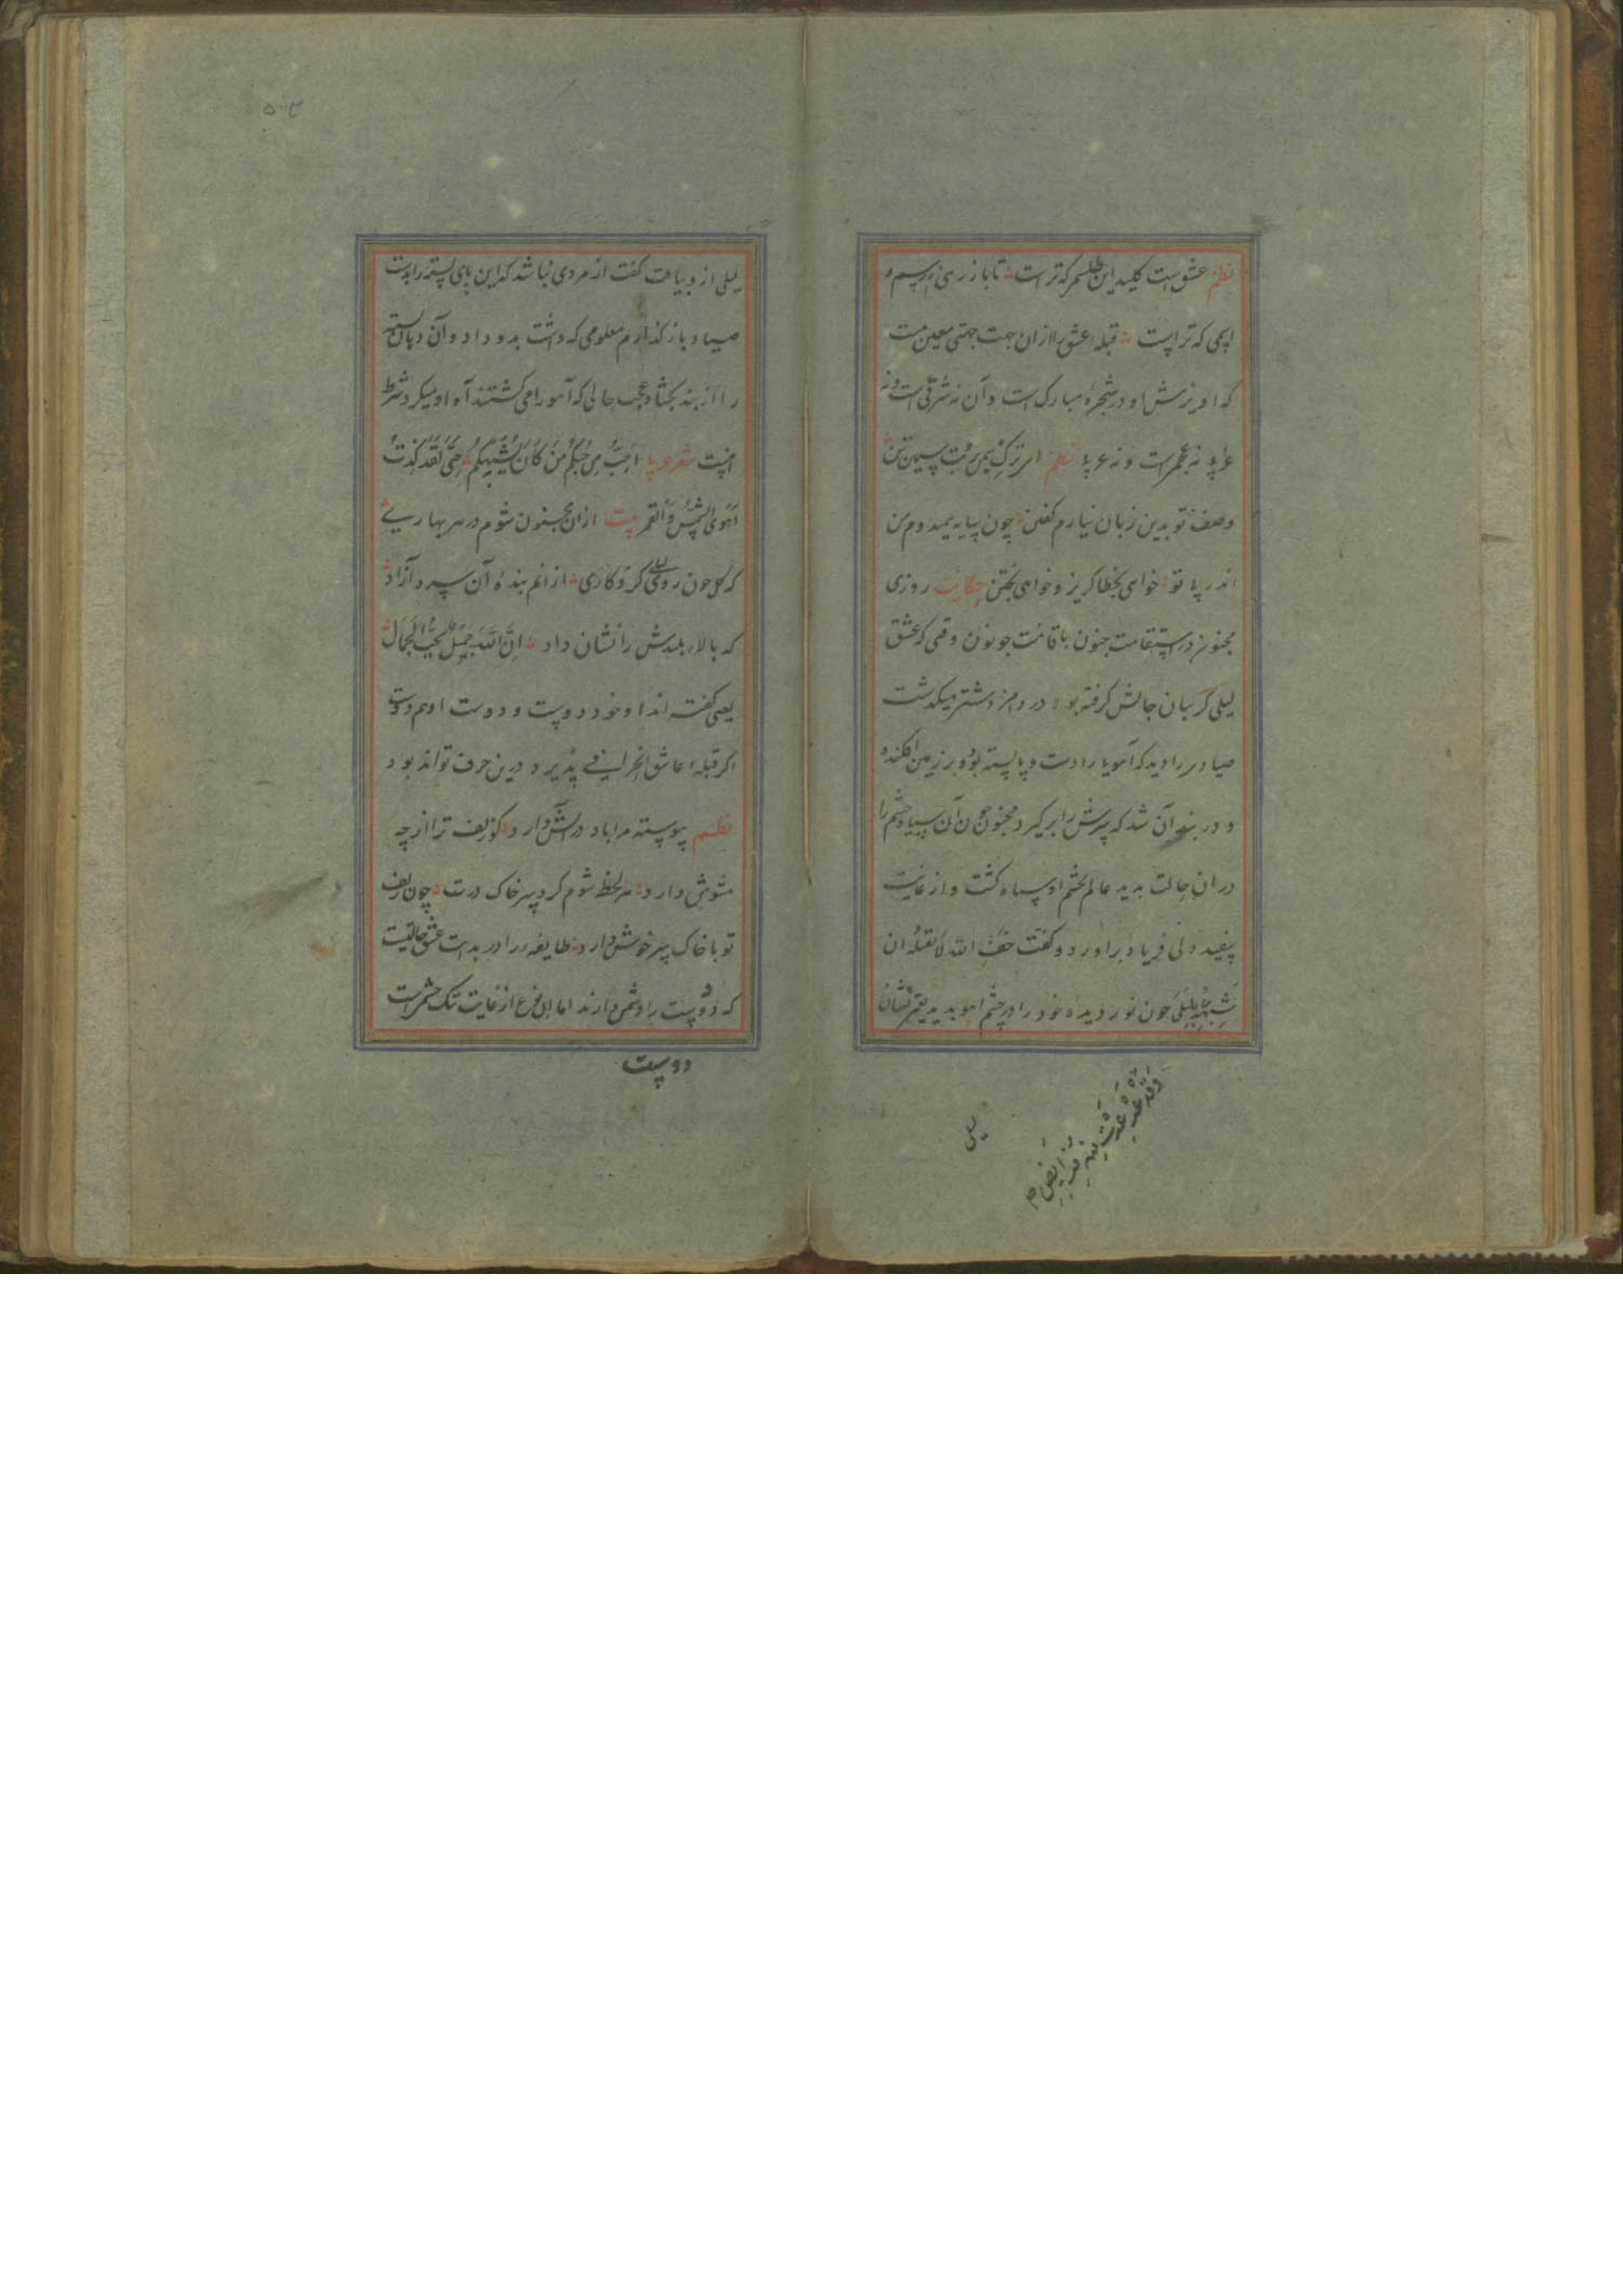 نظم عشق است کلید این طلسم که تراست تا باز رهی ز رسم و
اسمی که تراست قبله عشق را از ان جهت جهتی معین نیست
که آویزش او در شجره مبارک است و آن نه شرقی است و نه
غربی نه عجمی است و نه عربی نظم ای ترک سیمین بت سیمین تن
وصف تو بدین زبان نیارم گفتن چون سایه همی دوم من
اندر پی تو خواهی بخطا کریز و خواهی بختن حکایت روزی
مجنون در استقامت جنون با قامت چو نون وقتی که عشق
لیلی کریبان جانش کرفته بود در دامن دشتی میکذشت
صیادی را دید که آهویی را دست و پا بسته بود و بر زمین افکنده
و در بند آن شد که سرش را برکیرد مجنون چون آن سیاه چشم را
در ان حالت بدید عالم بچشم او سیاه کشت و از غایت
سفید دلی فریاد برآورد و کفت خف الله لا تقتله ان
شبهه بلیلی چون نور دیده خود را در چشم آهو بدید یعنی نشان
لیلی
لیلی از و بیافت کفت از مردی نباشد که این پای بسته را بدست
صیاد باز کذارم معلومی که داشت بدو داد و آن دهان بسته
را از بند بکشاد عجب حالی که آهو را می کشتند آه او میکرد شرط
اینست شعر عربی احب من حبکم من کان یشبهکم حتی لقد کدت
اهوی الشمس و القمر بیت ازان مجنون شوم در هر بهاری
که کل چون روی لیلی کرد کاری از انم بنده آن سرو آزاد
که بالای بلندش را نشان داد ان الله جمیل یحب الجمال
یعنی کفته اند او خود دوست و دوست او هم دوست
اکر قبله عاشق انحرافی پذیرد درین حرف تواند بود
نظم پیوسته مرا باد در آتش دارد کو زلف ترا از چه
مشوش دارد هر لحظ شوم کرد سر خاک درت چون زلف
تو با خاک سر خوش دارد طایفه را در بدایت عشق حالتیست
که دوست را دشمن دارند اما این نوع از غایت تنک چشمی است
دوست